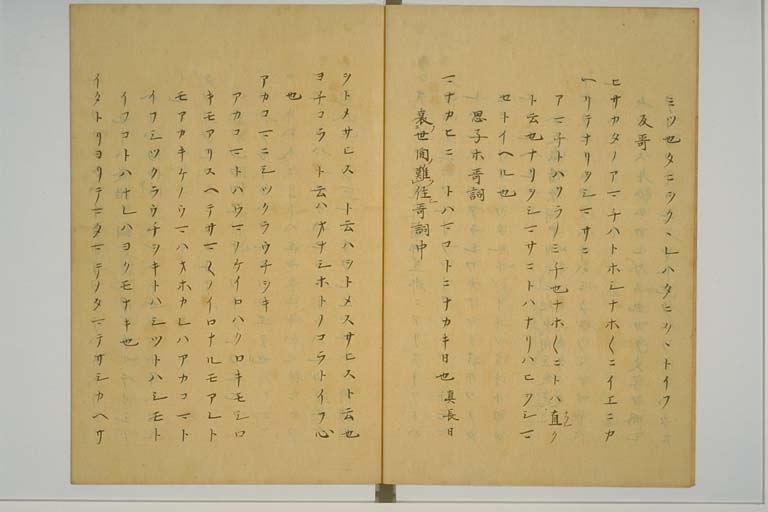 反哥
ヒサカタノアマチハトホシナホ〳〵ニイエニカ
ヘリテナリヲシマサニ
アマチトハソラノミチ也ナホ〳〵ニトハ直ク
ト云也ナリヲシマサニトハナリハヒヲシマ
セトイヘル也
思子等哥詞
マナカヒニトハマコトニナカキ日也真長日
哀世間難住哥詞中
ヲトメサヒスト云ハヲトメスサヒスト云也
ヨチコラハト云ハオナシホトノコラトイフ心
也
アカコマニシツクラウチヲキ
アカコマトハウマノケイロハクロキモシロ
キモアリスヘテサマ〳〵ノイロナルモアレト
モアカキケノウマハオホカレハアカコマト
イフシツクラウチヲキトハシツトハシモト
イフコトハナレハヨクモナキ也
イタトリヨリテマタマテノタマテサシカヘサ